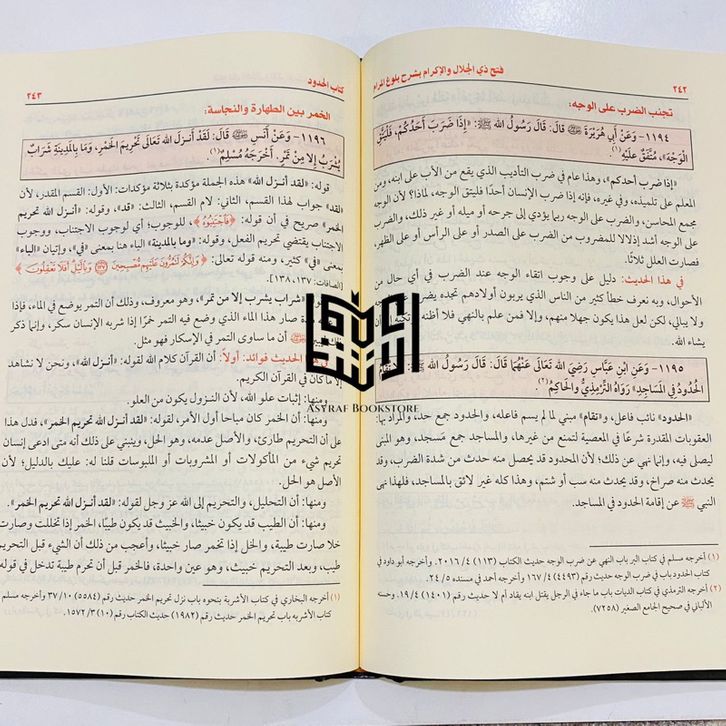 فتح ذي الجلال والإكرام بشرح بلوغ المرام
٢٤٢
تجنب الضرب على الوجه:
١١٩٤- وَعَنْ أَبِي هُرَيْرَةَ ﵁ قَالَ: قَالَ رَسُولُ اللهِ ﷺ: «إِذَا ضَرَبَ أَحَدُكُمْ، فَلْيَتَّقِ
الْوَجْهَ». مُتَّفَقٌ عَلَيْهِ(١).
«إذا ضرب أحدكم»، وهذا عام في ضرب التأديب الذي يقع من الأب على ابنه، ومن
المعلم على تلميذه، وفي غيره، فإنه إذا ضرب الإنسان أحدًا فليتق الوجه، لماذا؟ لأن الوجه
مجمع المحاسن، والضرب على الوجه ربما يؤدي إلى جرحه أو ميله أو غير ذلك، والضرب
على الوجه أشد إذلالا للمضروب من الضرب على الصدر أو على الرأس أو على الظهر،
فصارت العلل ثلاثًا.
في هذا الحديث: دليل على وجوب اتقاء الوجه عند الضرب في أي حال من
الأحوال، وبه نعرف خطأ كثير من الناس الذي يربون أولادهم تجده يضرب
ولا يبالي، لكن لعل هذا يكون جهلا منهم، وإلا فمن علم بالنهي فلا أظنه
يشاء الله.
١١٩٥- وَعَنِ ابْنِ عَبَّاسٍ رَضِيَ اللهُ تَعَالَى عَنْهُمَا قَالَ: قَالَ رَسُولُ اللهِ ﷺ:
الْحُدُودُ فِي الْمَسَاجِدِ» رَوَاهُ التِّرْمِذِيُّ وَالْحَاكِمُ(٢).
«الحدود» نائب فاعل، و«تقام» مبني لما لم يسم فاعله، والحدود جمع حد، والمراد بها:
العقوبات المقدرة شرعًا في المعصية لتمنع من غيرها، والمساجد جمع مَسجد، وهو المبني
ليصلى فيه، وإنما نهي عن ذلك؛ لأن المحدود قد يحصل منه حدث من شدة الضرب، وقد
يحدث منه صراخ، وقد يحدث منه سب أو شتم، وهذا كله غير لائق بالمساجد، فلهذا نهى
النبي ﷺ عن إقامة الحدود في المساجد.
(١) أخرجه مسلم في كتاب البر باب النهي عن ضرب الوجه حديث الكتاب (١١٣) ٢٠١٦/٤. وأخرجه أبو داود في
كتاب الحدود باب في ضرب الوجه حديث رقم (٤٤٩٣) ١٦٧/٤ وأخرجه أحمد في مسنده ٢٤/٥.
(٢) أخرجه الترمذي في كتاب الديات باب ما جاء في الرجل يقتل ابنه يقاد أم لا حديث رقم (١٤٠١) ١٩/٤. وحسنه
الألباني في صحيح الجامع الصغير (٧٢٥٨)
كتاب الحدود
٢٤٣
الخمر بين الطهارة والنجاسة:
١١٩٦- وَعَنْ أَنَسٍ ﵁ قَالَ: لَقَدْ أَنْزَلَ اللهُ تَعَالَى تَحْرِيمَ الْخَمْرِ، وَمَا بِالْمَدِينَةِ شَرَابٌ
يُشْرَبُ إِلا مِنْ تَمْرٍ. أَخْرَجَهُ مُسْلِمٌ(١).
قوله: «لقد أنزل الله» هذه الجملة مؤكدة بثلاثة مؤكدات: الأول: القسم المقدر، لأن
«لقد» جواب لهذا القسم، الثاني: لام القسم، الثالث: «قد»، وقوله: «أنزل الله تحريم
الخمر» صريح في أن قوله: ﴿فَاجْتَنِبُوهُ﴾، للوجوب؛ أي لوجوب الاجتناب، ووجوب
الاجتناب يقتضي تحريم الفعل، وقوله: «وما بالمدينة» الباء هنا بمعنى «في»، وإتيان «الباء»
بمعنى «في» كثير، ومنه قوله تعالى: ﴿وَإِنَّكُمْ لَتَمُرُّونَ عَلَيْهِمْ مُصْبِحِينَ ۝ وَبِاللَّيْلِ أَفَلَا تَعْقِلُونَ﴾
[الصافات: ١٣٧، ١٣٨].
وقوله: «شراب يشرب إلا من تمر»، وهو معروف، وذلك أن التمر يوضع في الماء، فإذا
صار هذا الماء الذي وضع فيه التمر خمرًا إذا شربه الإنسان سكر، وإنما ذكر
أن ما ساوى التمر في الإسكار فهو مثل.
هذا الحديث فوائد: أولًا: أن القرآن كلام الله لقوله: «أنزل الله»، ونحن لا نشاهد
إلا ما كان في القرآن الكريم.
ومنها: إثبات علو الله، لأن النزول يكون من العلو.
ومنها: أن الخمر كان مباحًا أول الأمر، لقوله: «لقد أنزل الله تحريم الخمر»، فدل هذا
على أن التحريم طارئ، والأصل عدمه، وهو الحل، وينبني على ذلك أنه متى ادعى إنسان
تحريم شيء من المأكولات أو المشروبات أو الملبوسات قلنا له: عليك بالدليل؛ لأن
الأصل هو الحل.
ومنها: أن التحليل، والتحريم إلى الله عز وجل لقوله: «لقد أنزل الله تحريم الخمر».
ومنها: أن الطيب قد يكون خبيثًا، والخبيث قد يكون طيبًا، كالخمر إذا تخللت وصارت
خلا صارت طيبة، والخل إذا تخمر صار خبيثًا، وأعجب من ذلك أن الشيء قبل التحريم
طيب، وبعد التحريم خبيث، وهو عين واحدة، فالخمر قبل أن تحرم طيبة تدخل في قوله
(١) أخرجه البخاري في كتاب الأشربة بنحوه باب نزل تحريم الخمر حديث رقم (٥٥٨٤) ٣٧/١٠ وأخرجه مسلم
كتاب الأشربة باب تحريم الخمر حديث رقم (١٩٨٢) حديث الكتاب رقم (١٠) ١٥٧٢/٣.
ASYRAF BOOKSTORE